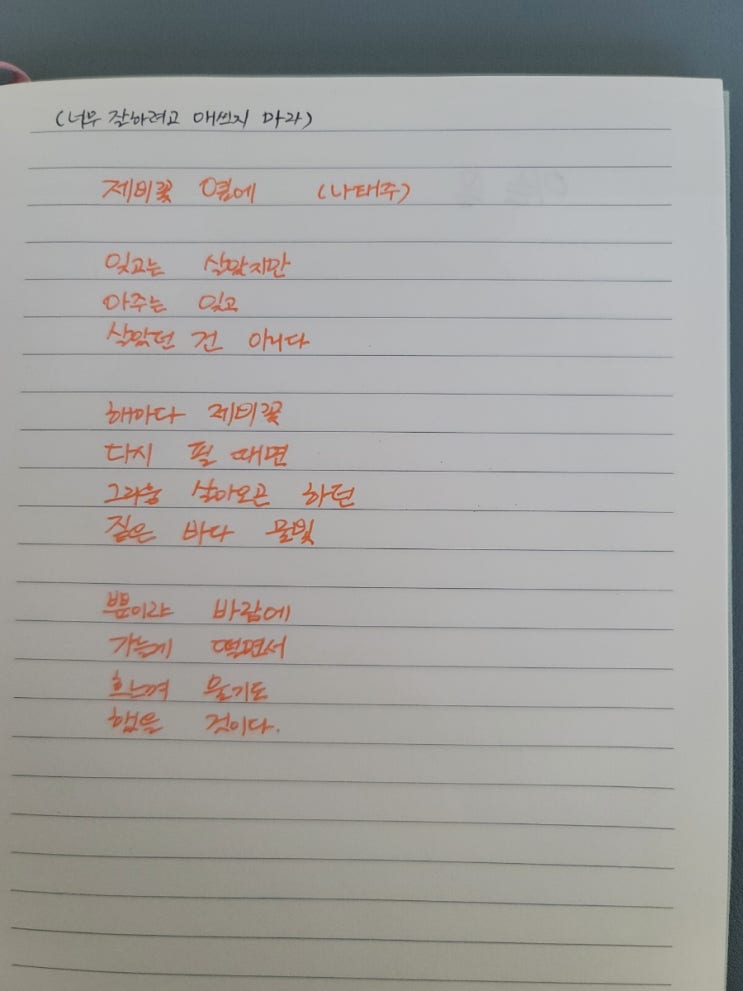 (너무 잘하려고 애쓰지 마라)
제비꽃 옆에 (나태주)
잊고는 살았지만
아주는 잊고
살았던 건 아니다
해마다 제비꽃
다시 필 때면
그리움 살아오곤 하던
짙은 바다 물빛
뿐이랴 바람에
가늘게 떨면서
흐느껴 울기도
했을 것이다.